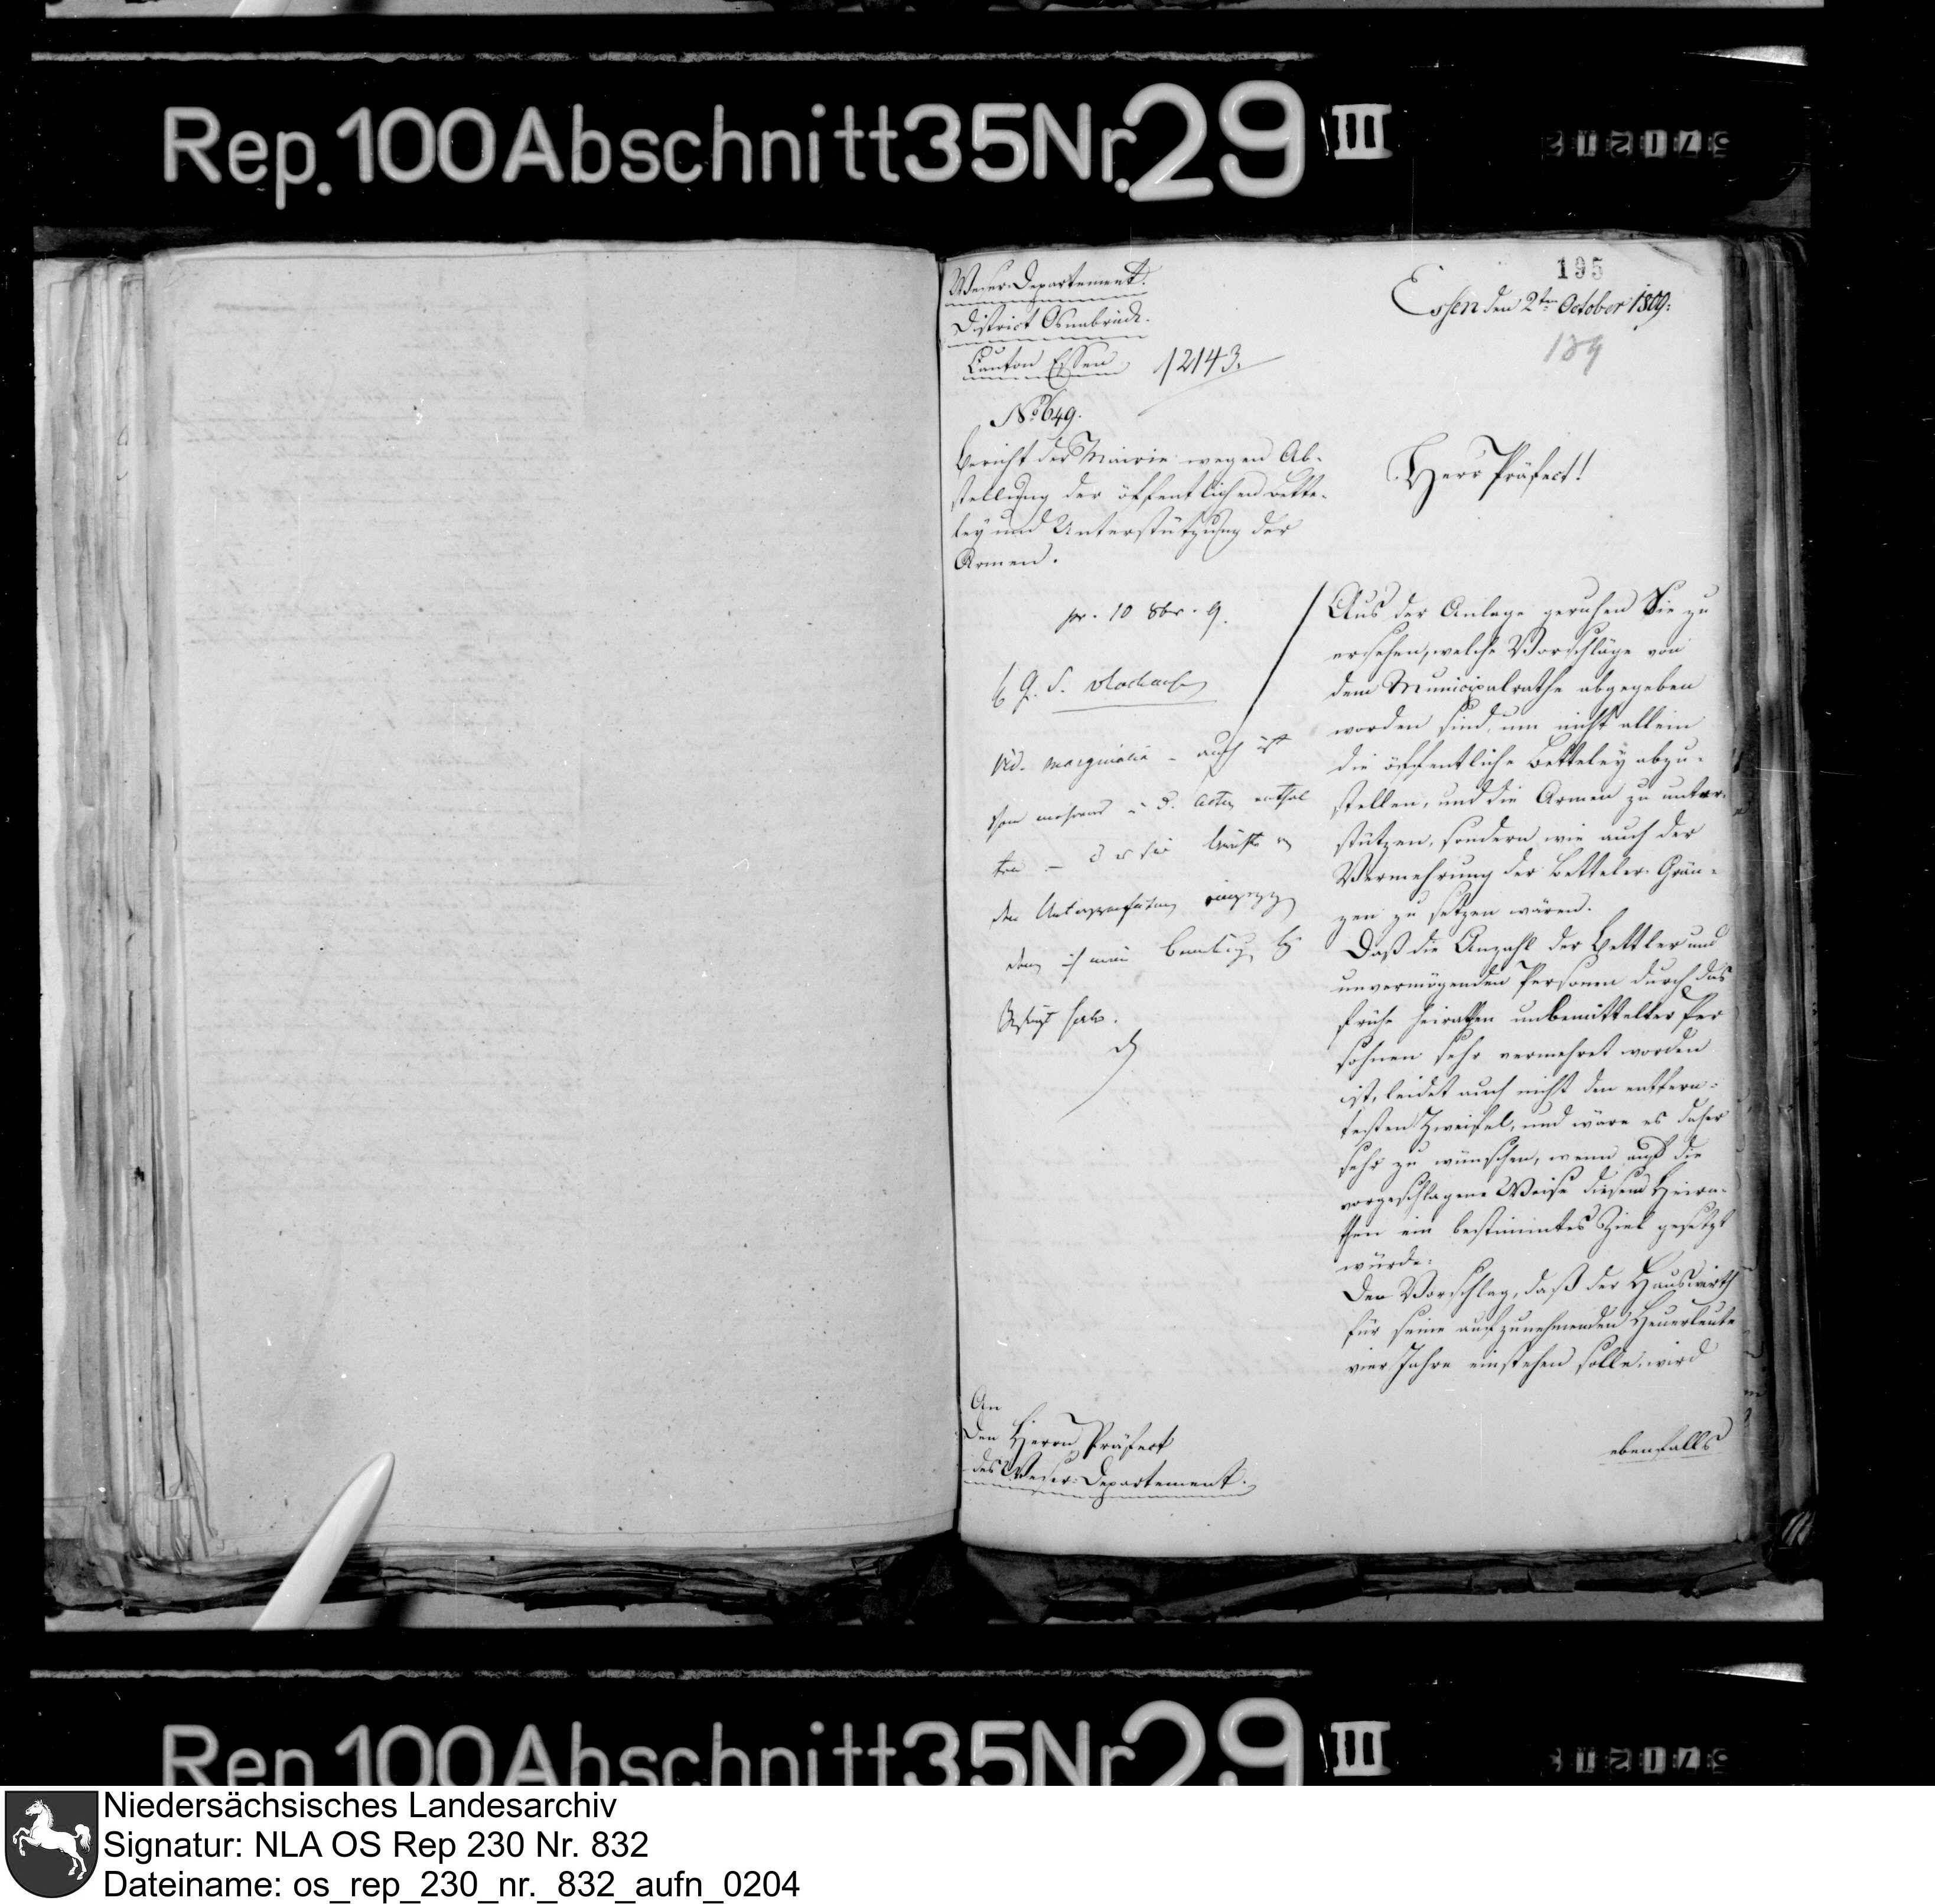 Rep. 100 Abschnitt 35 Nr. 29 III
195
Weser-Departement.
District Osnabrück.
Canton Essen 12143.
Essen den 2ten October 1809.
189
No 649.
Bericht des Mairie wegen Ab-
stellung der öffentlichen Bette-
ley und Unterstützung der
Armen.
Herr Präfect!
pr. 10 8br. 9.
Aus der Anlage geruhen Sie zu
ersehen, welche Vorschläge von
dem Municipalrathe abgegeben
worden sind, um nicht allein
die öffentliche Betteley abzu-
stellen, und die Armen zu unter-
stützen, sondern wie auch der
Vermehrung der Betteler Grän-
zen zu setzen wären.
Daß die Anzahl der Bettler und
unvermögenden Personen durch das
frühe heirathen unbemittelter Per
sohnen sehr vermehret worden
ist, leidet auch nicht den entfern-
testen Zweifel, und wäre es daher
sehr zu wünschen, wenn auf die
vorgeschlagene Weise diesem Heira-
then ein bestimmtes Ziel gesetzt
würde.
Den Vorschlag, daß der Hauswirth
für seine aufzunehmenden Heuerleute
vier Jahre einstehen solle, wird
ebenfalls
vid. marginalia - auch ist
An
Den Herrn Präfect
des Weser-Departement.
Rep. 100 Abschnitt 35 Nr. 29 III
Niedersächsisches Landesarchiv
Signatur: NLA OS Rep 230 Nr. 832
Dateiname: os_rep_230_nr._832_aufn_0204